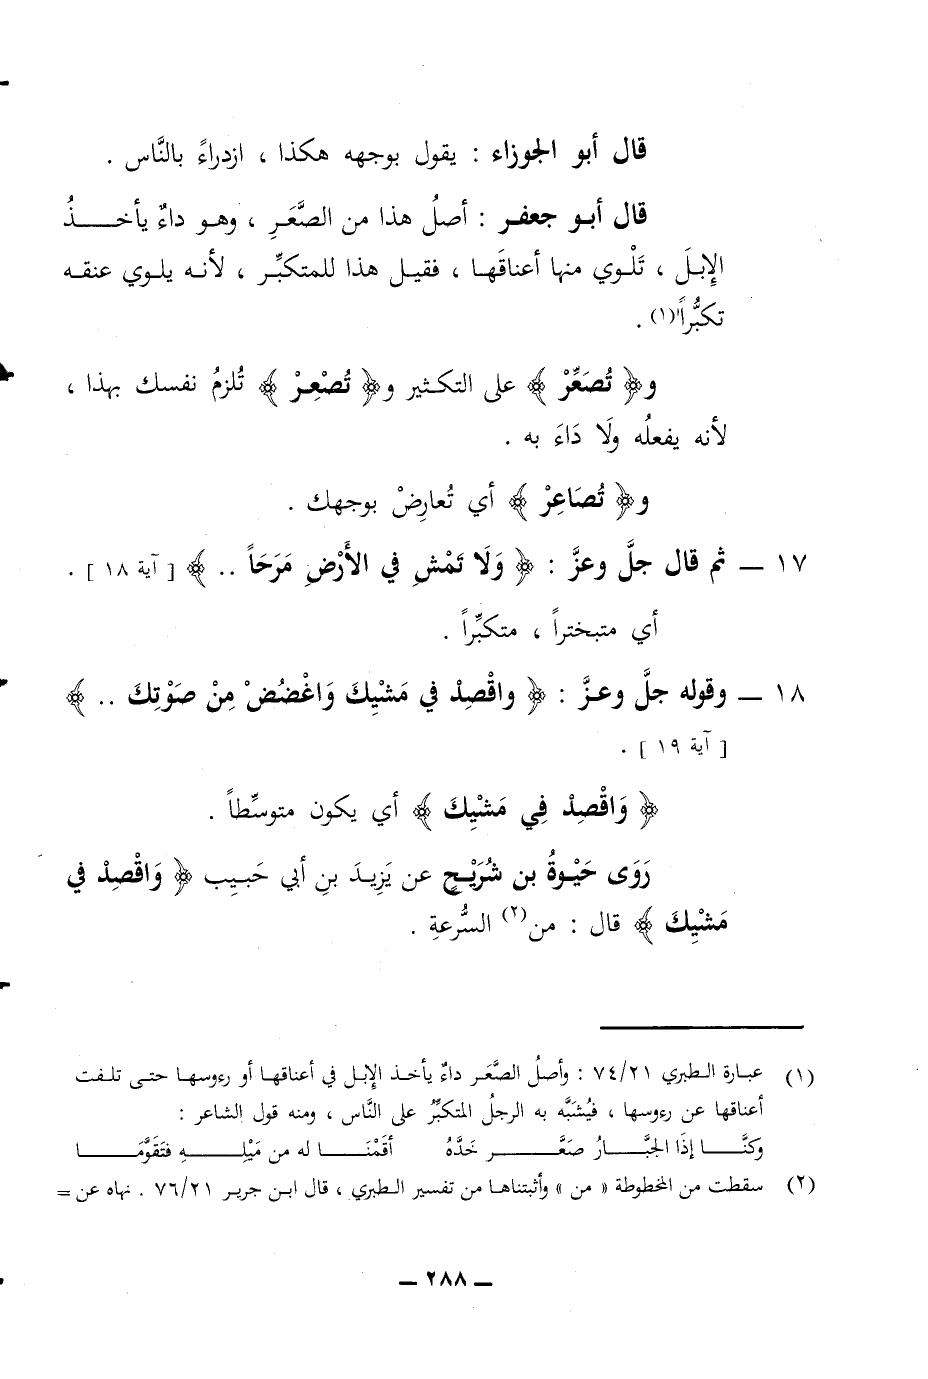 قال أبو الجوزاء : يقول بوجهه هكذا ، ازدراءً بالنَّاس .
قال أبـو جعفـر : أصلُ هذا من الصَّعَرِ ، وهـو داءٌ يأخـــذُ
الإِبلَ ، تَلْوي منها أعناقَهـا ، فقيـل هذا للمتكبِّـر ، لأنـه يلـوي عنقـه
تكبُّراً(١) .
و﴿ تُصَعِّرْ ﴾ على التكـثير و﴿ تُصْعِـرْ ﴾ تُلزمُ نفسك بهذا ،
لأنه يفعلُه ولَا دَاءَ به .
و﴿ تُصَاعِرْ ﴾ أي تُعارِضْ بوجهك .
١٧ ــ ثم قال جلَّ وعزَّ : ﴿ وَلَا تَمْشِ في الأَرْضِ مَرَحَاً .. ﴾ [ آية ١٨ ] .
أي متبختراً ، متكبِّراً .
١٨ ــ وقوله جلَّ وعـزَّ : ﴿ واقْصِدْ في مَشْيِكَ وَاغْضُضْ مِنْ صَوْتِكَ .. ﴾
[ آية ١٩ ] .
﴿ وَاقْصِدْ فِي مَشْيِكَ ﴾ أي يكون متوسِّطاً .
رَوَى حَيْـوةُ بن شُرَيْـحٍ عن يَزِيـدَ بنِ أبي حَبـِيب ﴿ وَاقْصِدْ في
مَشْيِكَ ﴾ قال : من(٢) السُّرعةِ .
(١) عبـارة الـطبري ٧٤/٢١ : وأصلُ الصَّعَـر داءٌ يأخـذ الإِبـل في أعناقهـا أو رءوسهـا حتـى تلـفت
أعناقها عن رءوسها ، فيُشَبَّه به الرجلُ المتكبِّرُ على النَّاس ، ومنه قول الشاعر :
وكنَّـــا إذَا الجَبَّـــارُ صَعَّـــــرَ خَدَّهُ أقَمْنَـــا له من مَيْلِـــــهِ فَتَقَوَّمَـــا
(٢) سقطت من المخطوطة « من » وأثبتناهـا من تفسير الـطبري ، قال ابـن جرير ٧٦/٢١ . نهاه عن =
ــ ٢٨٨ ــ